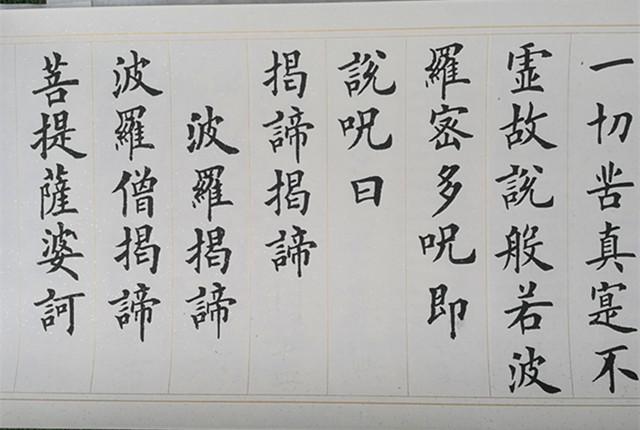 一切苦真寔不
虛故說般若波
羅密多呪即
說呪曰
揭諦揭諦
波羅揭諦
波羅僧揭諦
菩提薩婆訶